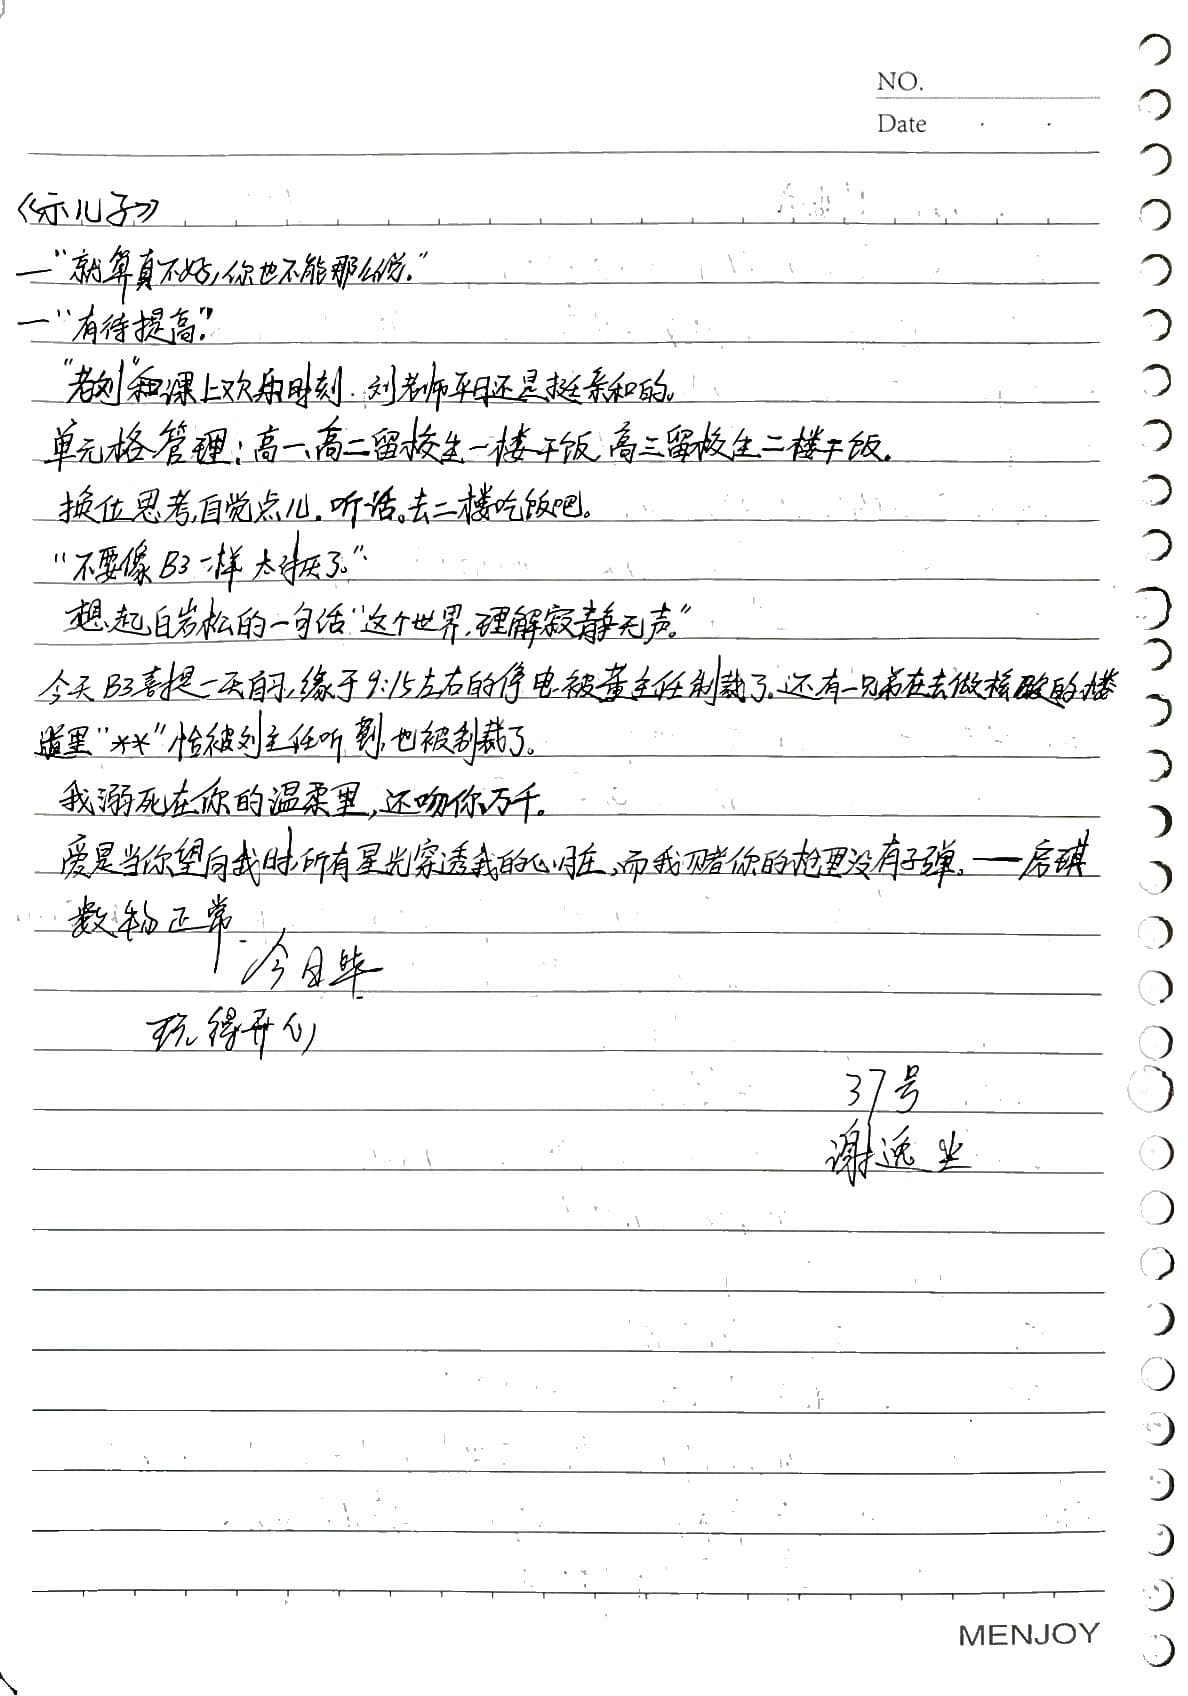 NO.
Date
《示儿子》
—"就算真不好,你也不能那么说."
—"有待提高."
"老刘"和课上欢乐时刻.刘老师平日还是挺亲和的。
单元格管理:高一、高二留校生一楼干饭,高三留校生二楼干饭.
换位思考,自觉点儿.听话。去二楼吃饭吧。
"不要像B3一样 太讨厌了。"
想起白岩松的一句话:"这个世界,理解寂静无声."
今天B3喜提一天自习,缘于9:15左右的停电.被董主任制裁了.还有一兄弟在去做核酸的楼
道里"**"恰被刘主任听到,也被制裁了。
我溺死在你的温柔里,还吻你万千。
爱是当你望向我时,所有星光穿透我的心脏,而我只赌你的枪里没有子弹. ——房琪
数物正常.
今日毕
玩得开心
37号
谢逸
MENJOY